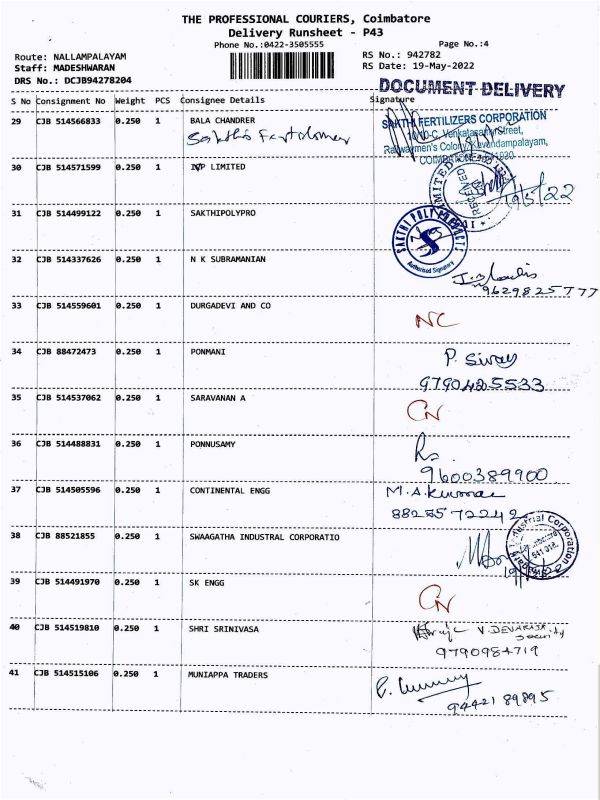 THE PROFESSIONAL COURIERS, Coimbatore
Delivery Runsheet - P43
Phone No.:0422-3505555
Page No.:4
Route: NALLAMPALAYAM
RS No.: 942782
Staff: MADESHWARAN
RS Date: 19-May-2022
DRS No.: DCJB94278204
DOCUMENT DELIVERY
S No Consignment No Weight PCS Consignee Details Signature
29 CJB 514566833 0.250 1 BALA CHANDRER
SAKTHI FERTILIZERS CORPORATION
Street,
30 CJB 514571599 0.250 1 IVP LIMITED
RECEIVED
19/5/22
31 CJB 514499122 0.250 1 SAKTHIPOLYPRO
SAKTHI POLY PRODUCTS
Authorised Signatory
32 CJB 514337626 0.250 1 N K SUBRAMANIAN
9629825777
33 CJB 514559601 0.250 1 DURGADEVI AND CO
NC
34 CJB 88472473 0.250 1 PONMANI
P. Sivaj
9790425533
35 CJB 514537062 0.250 1 SARAVANAN A
CN
36 CJB 514488831 0.250 1 PONNUSAMY
9600389900
37 CJB 514505596 0.250 1 CONTINENTAL ENGG
M.A.Kumar
8825572242
38 CJB 88521855 0.250 1 SWAAGATHA INDUSTRAL CORPORATIO
Industrial Corporation
39 CJB 514491970 0.250 1 SK ENGG
CN
40 CJB 514519810 0.250 1 SHRI SRINIVASA
V. DEVARAJ
Security
9790984719
41 CJB 514515106 0.250 1 MUNIAPPA TRADERS
94421 89895